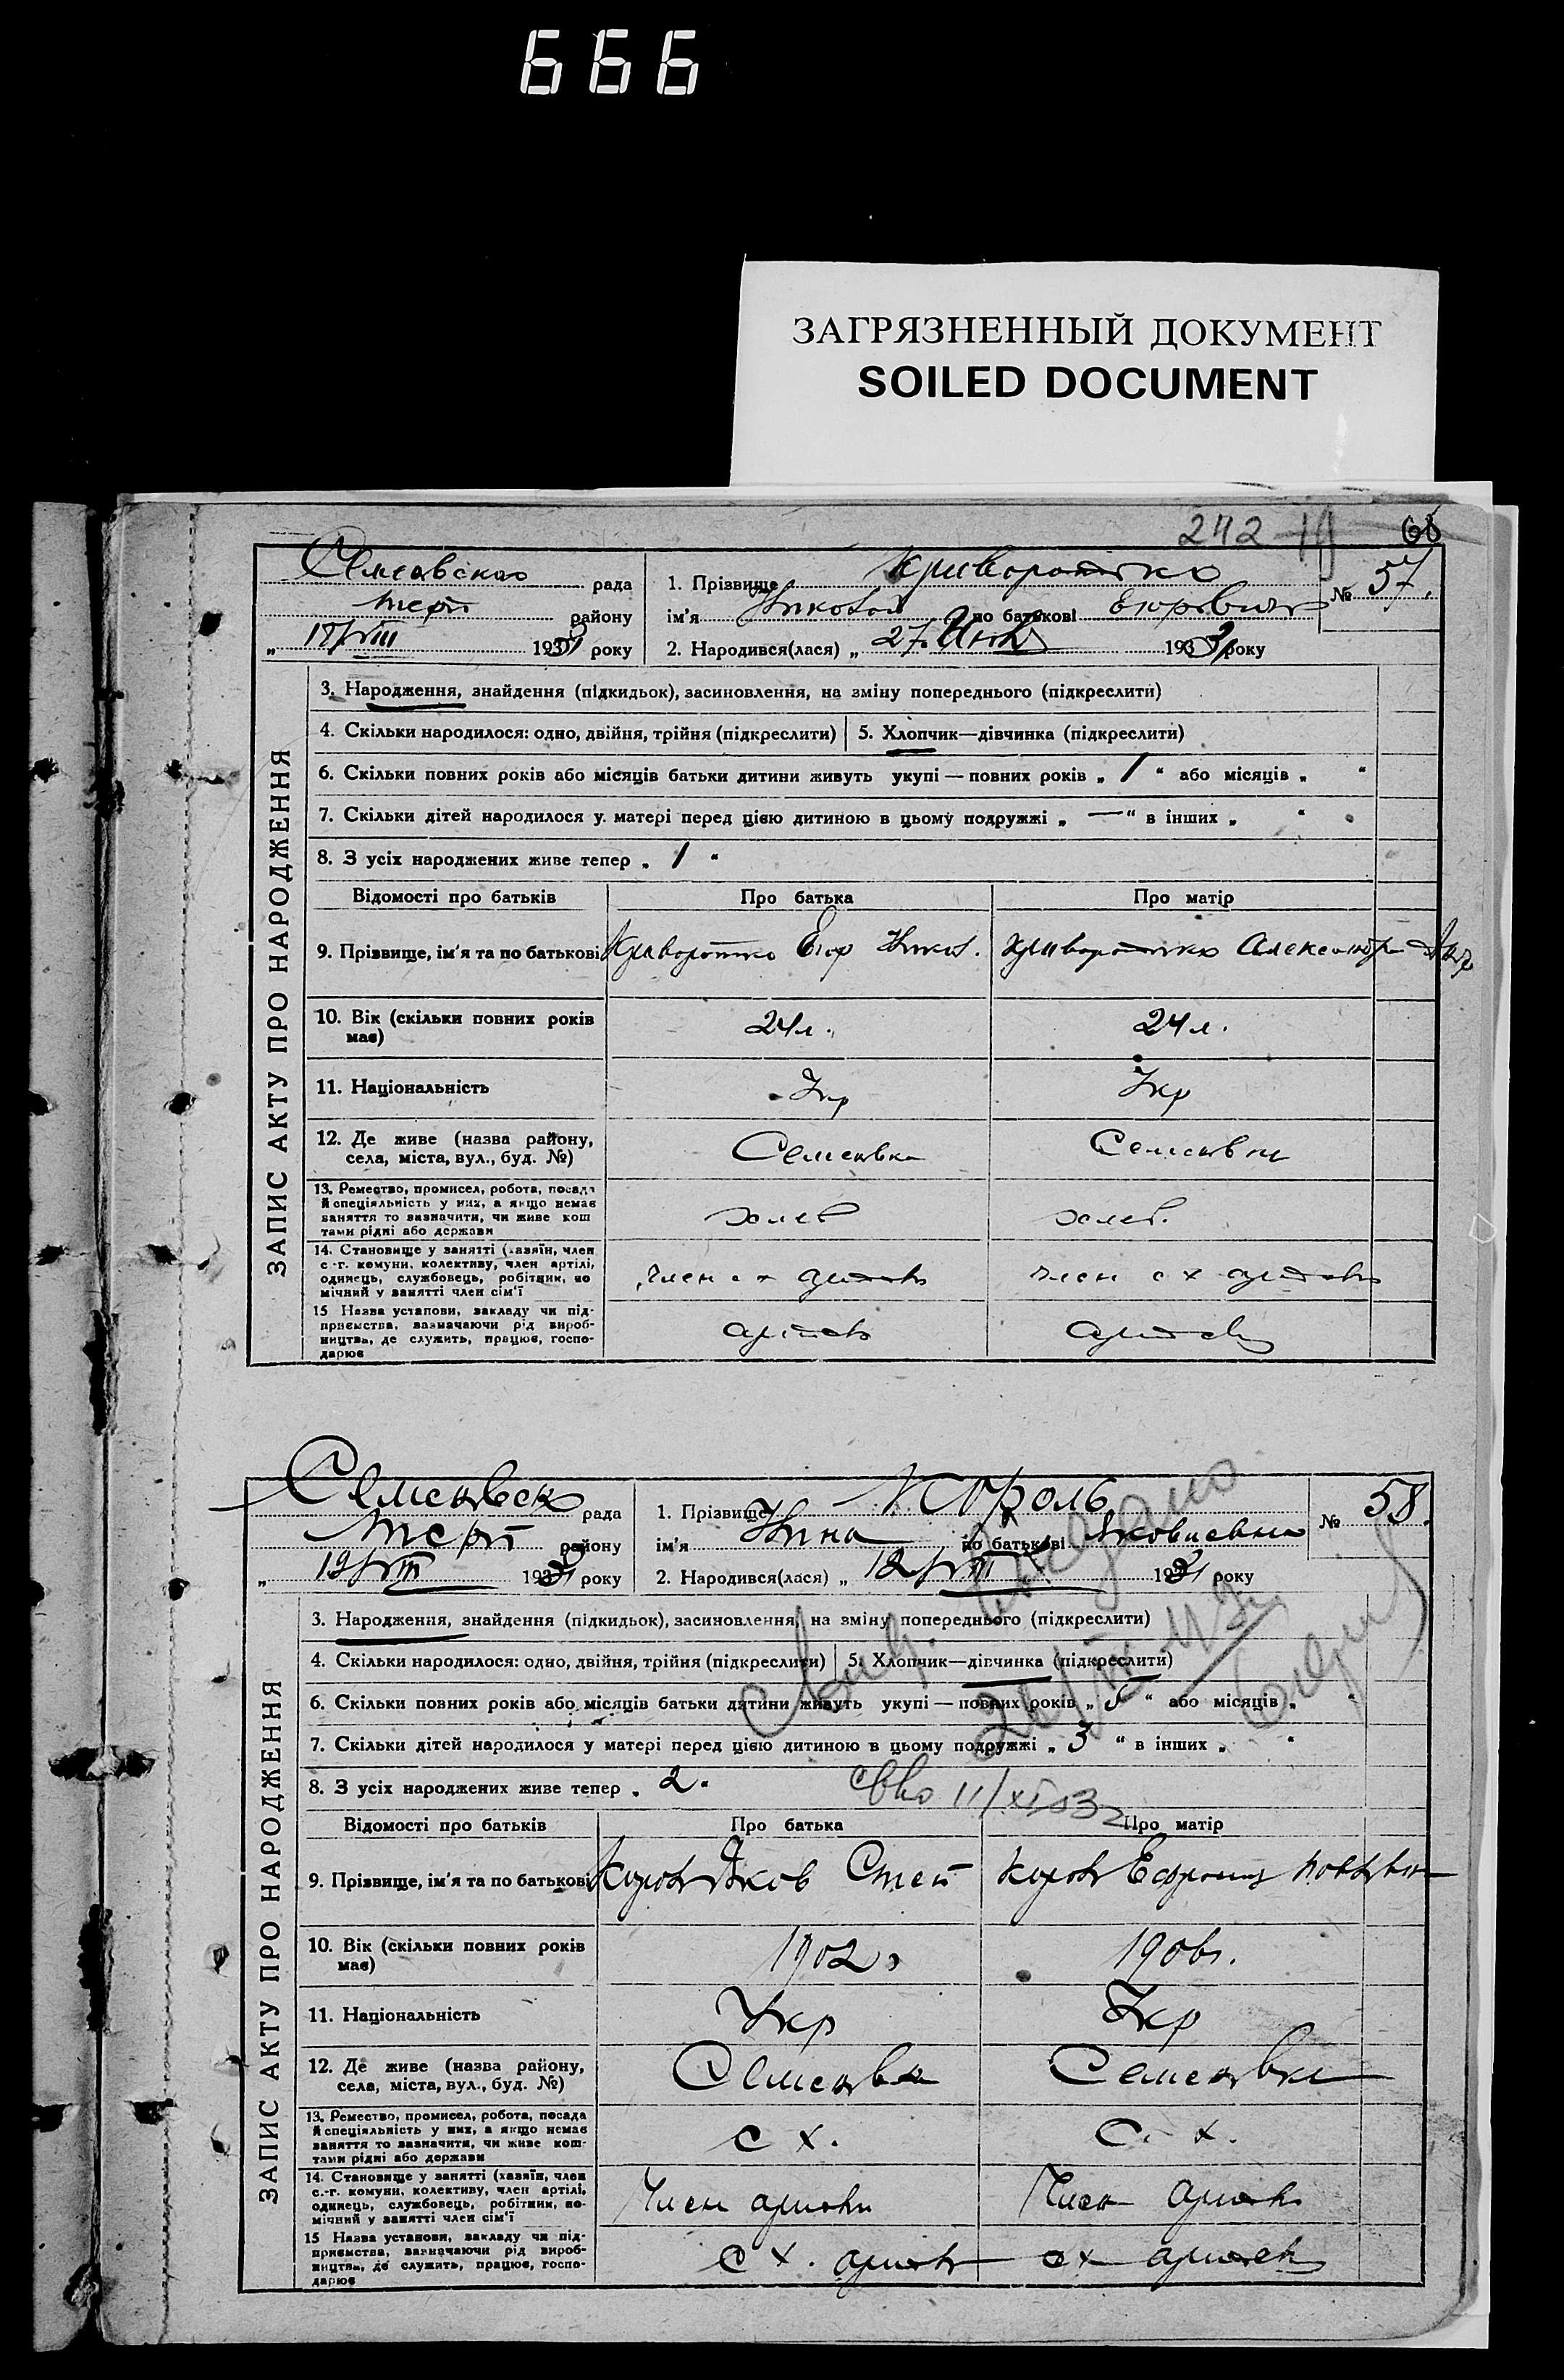 666
ЗАГРЯЗНЕННЫЙ ДОКУМЕНТ
SOILED DOCUMENT
242
68
рада
району
18/VIII 1931 року
1. Прізвище Криворотько
ім'я Николай по батькові Егорович
№ 57.
2. Народився(лася) „ 27 Июля 1931 року
ЗАПИС АКТУ ПРО НАРОДЖЕННЯ
3. Народження, знайдення (підкидьок), засиновлення, на зміну попереднього (підкреслити)
4. Скільки народилося: одно, двійня, трійня (підкреслити) 5. Хлопчик—дівчинка (підкреслити)
6. Скільки повних років або місяців батьки дитини живуть укупі — повних років „ 1 “ або місяців „ “
7. Скільки дітей народилося у матері перед цією дитиною в цьому подружжі „ — “ в інших „ “
8. З усіх народжених живе тепер „ 1 “
Відомості про батьків Про батька Про матір
9. Прізвище, ім'я та по батькові Криворотько Егор Никол. Криворотько Александра
10. Вік (скільки повних років має) 24 л. 24 л.
11. Національність Укр Укр
12. Де живе (назва району, села, міста, вул., буд. №) Семеновка Семеновка
13. Ремество, промисел, робота, посада й спеціяльність у них, а якщо немає заняття то зазначити, чи живе коштами рідні або держави
14. Становище у занятті (хазяїн, член с.-г. комуни, колективу, член артілі, одинець, службовець, робітник, помічний у занятті член сім'ї Член с х артели Член с х артели
15 Назва установи, закладу чи підприємства, зазначаючи рід виробництва, де служить, працює, господарює артель артель
Семеновск рада
району
12/VIII 1931 року
1. Прізвище Король
ім'я Нина по батькові Яковлевна
№ 58.
2. Народився(лася) „ 12/VIII 1931 року
ЗАПИС АКТУ ПРО НАРОДЖЕННЯ
3. Народження, знайдення (підкидьок), засиновлення, на зміну попереднього (підкреслити)
4. Скільки народилося: одно, двійня, трійня (підкреслити) 5. Хлопчик—дівчинка (підкреслити)
6. Скільки повних років або місяців батьки дитини живуть укупі — повних років „ “ або місяців „ “
7. Скільки дітей народилося у матері перед цією дитиною в цьому подружжі „ 3 “ в інших „ “
8. З усіх народжених живе тепер „ 2 “
Відомості про батьків Про батька Про матір
9. Прізвище, ім'я та по батькові Король Яков Степ Король
10. Вік (скільки повних років має) 1902 1906 г.
11. Національність Укр Укр
12. Де живе (назва району, села, міста, вул., буд. №) Семеновка Семеновка
13. Ремество, промисел, робота, посада й спеціяльність у них, а якщо немає заняття то зазначити, чи живе коштами рідні або держави с х. с. х.
14. Становище у занятті (хазяїн, член с.-г. комуни, колективу, член артілі, одинець, службовець, робітник, помічний у занятті член сім'ї Член артели Член артели
15 Назва установи, закладу чи підприємства, зазначаючи рід виробництва, де служить, працює, господарює с х. артель с х артель